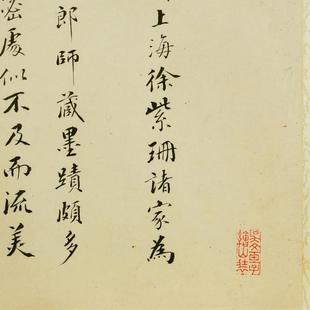 上海徐紫珊諸家為
郎師藏墨蹟頗多
密處似不及而流美